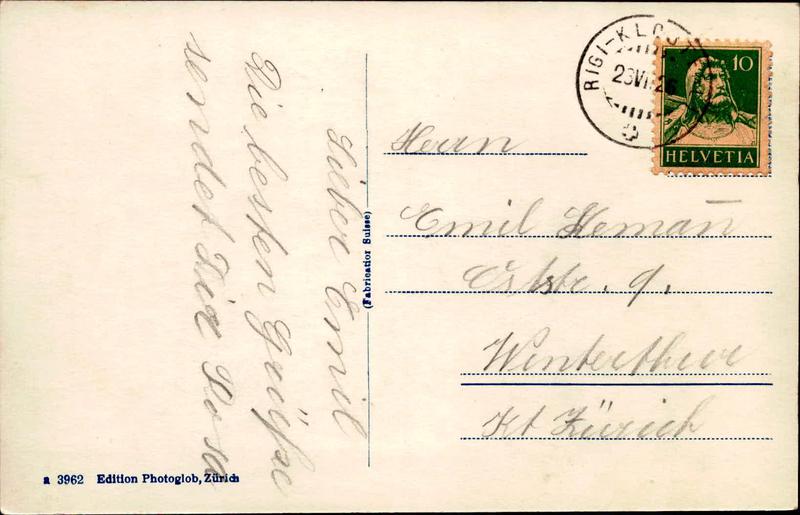 Lieber Emil
Die besten Grüße
sendet Dir Rosa
(Fabrication Suisse)
a 3962 Edition Photoglob, Zürich
RIGI-KLO
23 VI 26
10
HELVETIA
Herrn
Emil Hemañ
Oststr. 9.
Winterthur
Kt Zürich